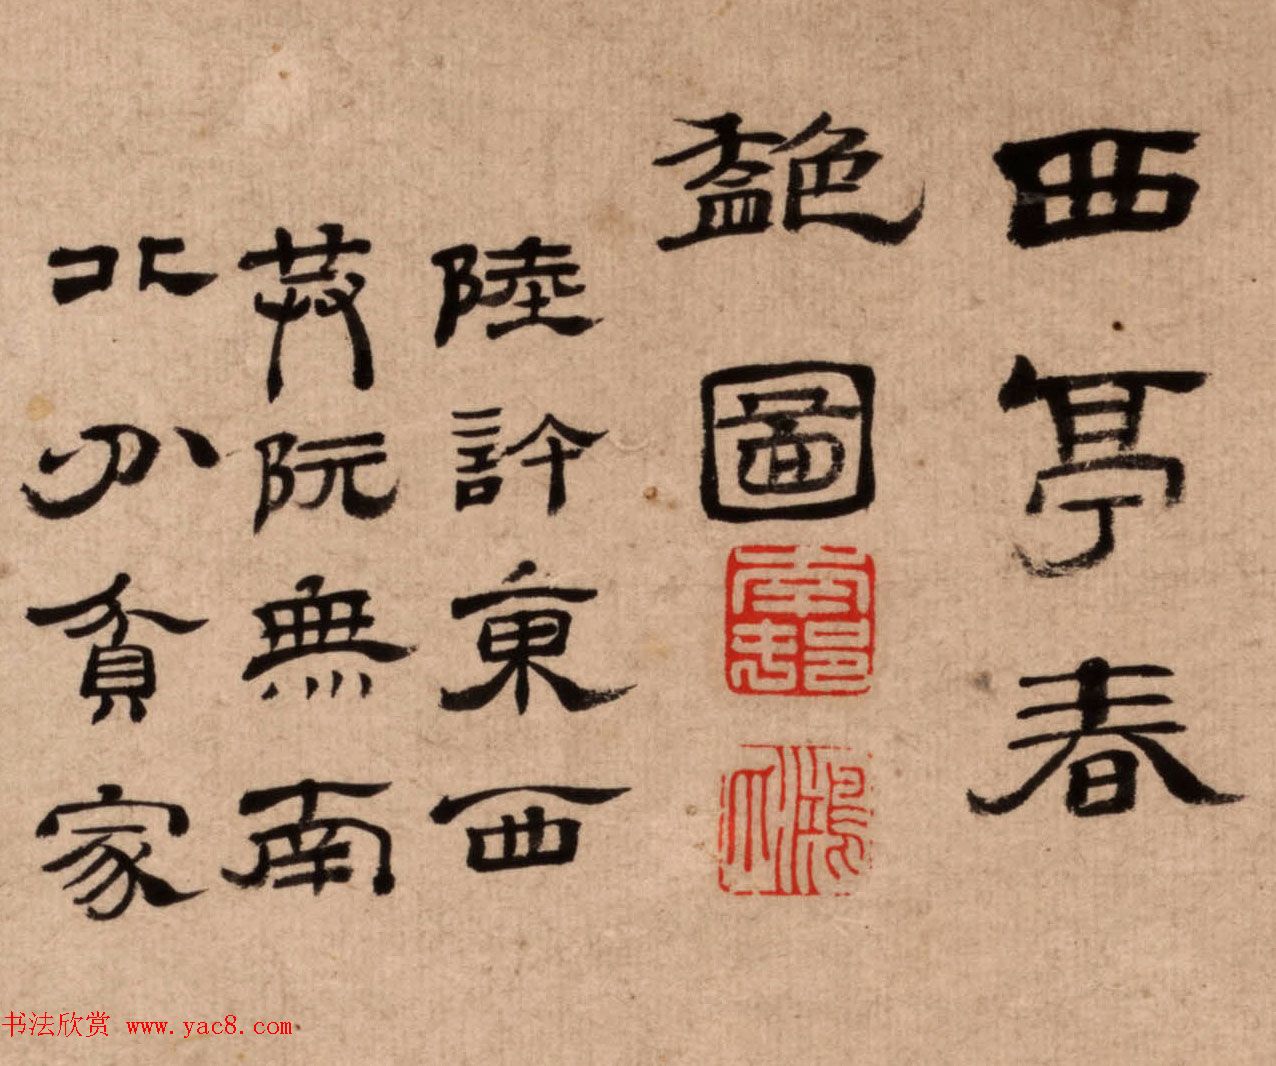 西亭春
豔圖
陸許東西
𦭘阮無南
北分貧家
书法欣赏 www.yac8.com